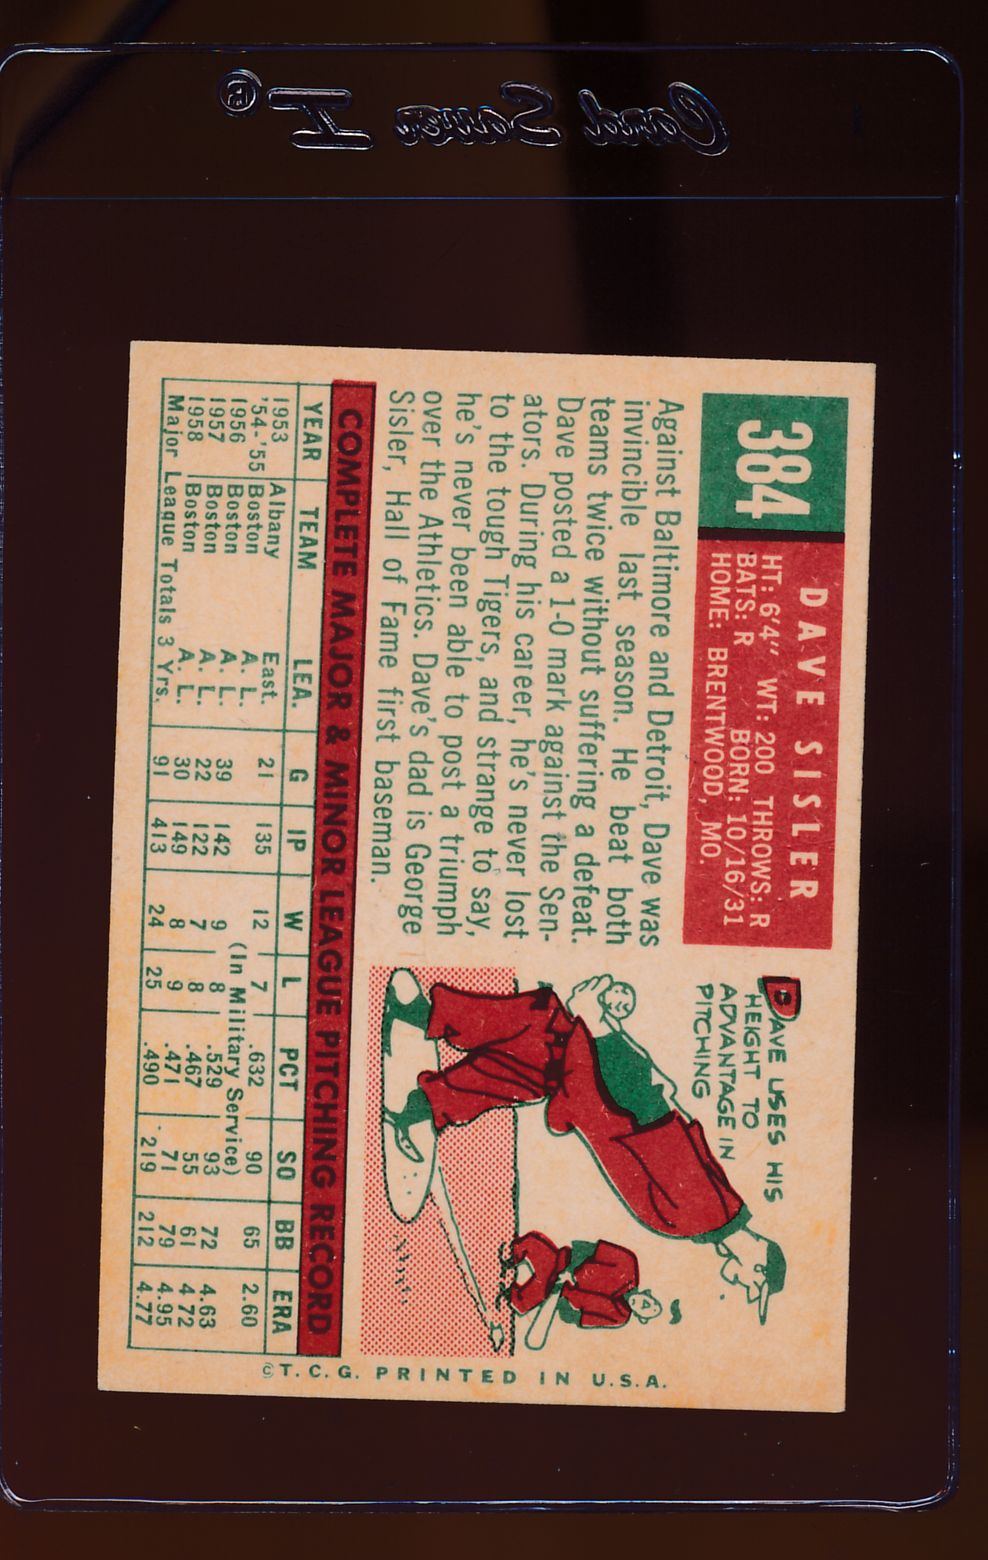 Card Saver I®
384
DAVE SISLER
HT: 6'4" WT: 200 THROWS: R
BATS: R BORN: 10/16/31
HOME: BRENTWOOD, MO.
Against Baltimore and Detroit, Dave was
invincible last season. He beat both
teams twice without suffering a defeat.
Dave posted a 1-0 mark against the Sen-
ators. During his career, he's never lost
to the tough Tigers, and strange to say,
he's never been able to post a triumph
over the Athletics. Dave's dad is George
Sisler, Hall of Fame first baseman.
DAVE USES HIS
HEIGHT TO
ADVANTAGE IN
PITCHING
COMPLETE MAJOR & MINOR LEAGUE PITCHING RECORD
YEAR TEAM LEA. G IP W L PCT SO BB ERA
1953 Albany East. 21 135 12 7 .632 90 65 2.60
'54-'55 Boston A. L. (In Military Service)
1956 Boston A. L. 39 142 9 8 .529 93 72 4.63
1957 Boston A. L. 22 122 7 8 .467 55 61 4.72
1958 Boston A. L. 30 149 8 9 .471 71 79 4.95
Major League Totals 3 Yrs. 91 413 24 25 .490 219 212 4.77
©T.C.G. PRINTED IN U.S.A.